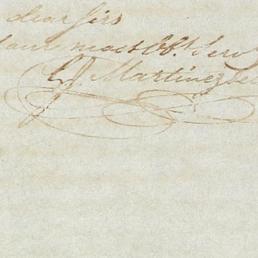 dear Sirs
your most Obt. Serv
J. Martinez